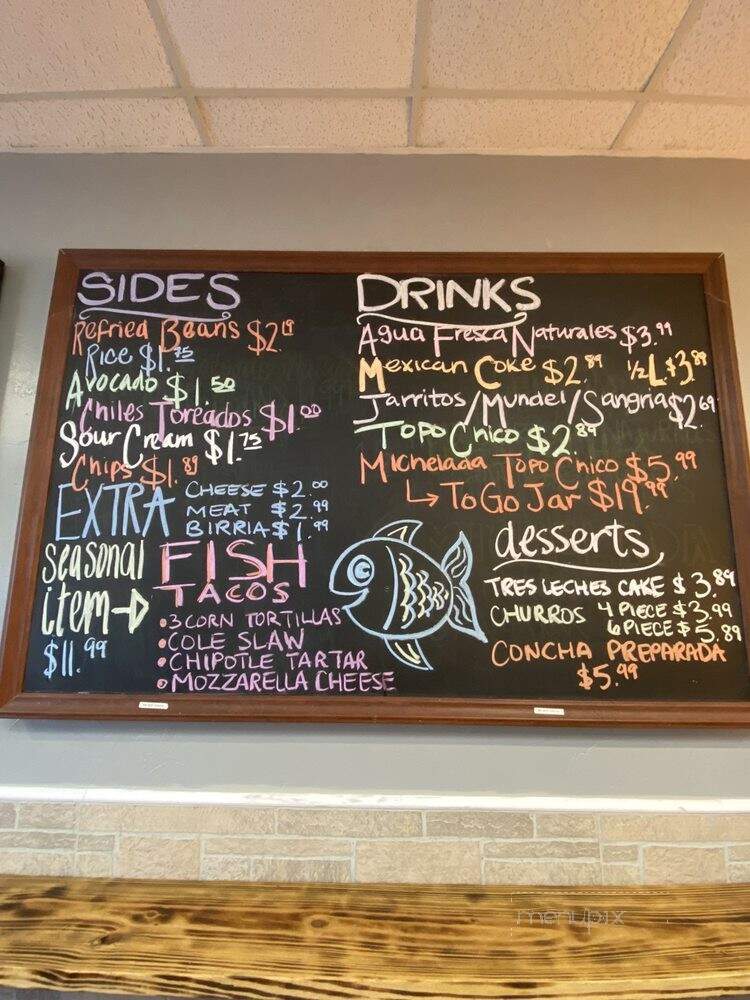 SIDES
Refried Beans $2.19
Rice $1.75
Avocado $1.50
Chiles Toreados $1.00
Sour Cream $1.75
Chips $1.89
EXTRA
CHEESE $2.00
MEAT $2.99
BIRRIA $1.99
seasonal
item→
$11.99
FISH
TACOS
•3 CORN TORTILLAS
•COLE SLAW
•CHIPOTLE TARTAR
•MOZZARELLA CHEESE
DRINKS
Agua Fresca Naturales $3.99
Mexican Coke $2.89 ½L $3.89
Jarritos/Mundel/Sangria $2.69
Topo Chico $2.89
Michelada Topo Chico $5.99
↳To Go Jar $19.99
desserts
TRES LECHES CAKE $3.89
CHURROS 4 PIECE $3.99
6 PIECE $5.89
CONCHA PREPARADA
$5.99
menupix